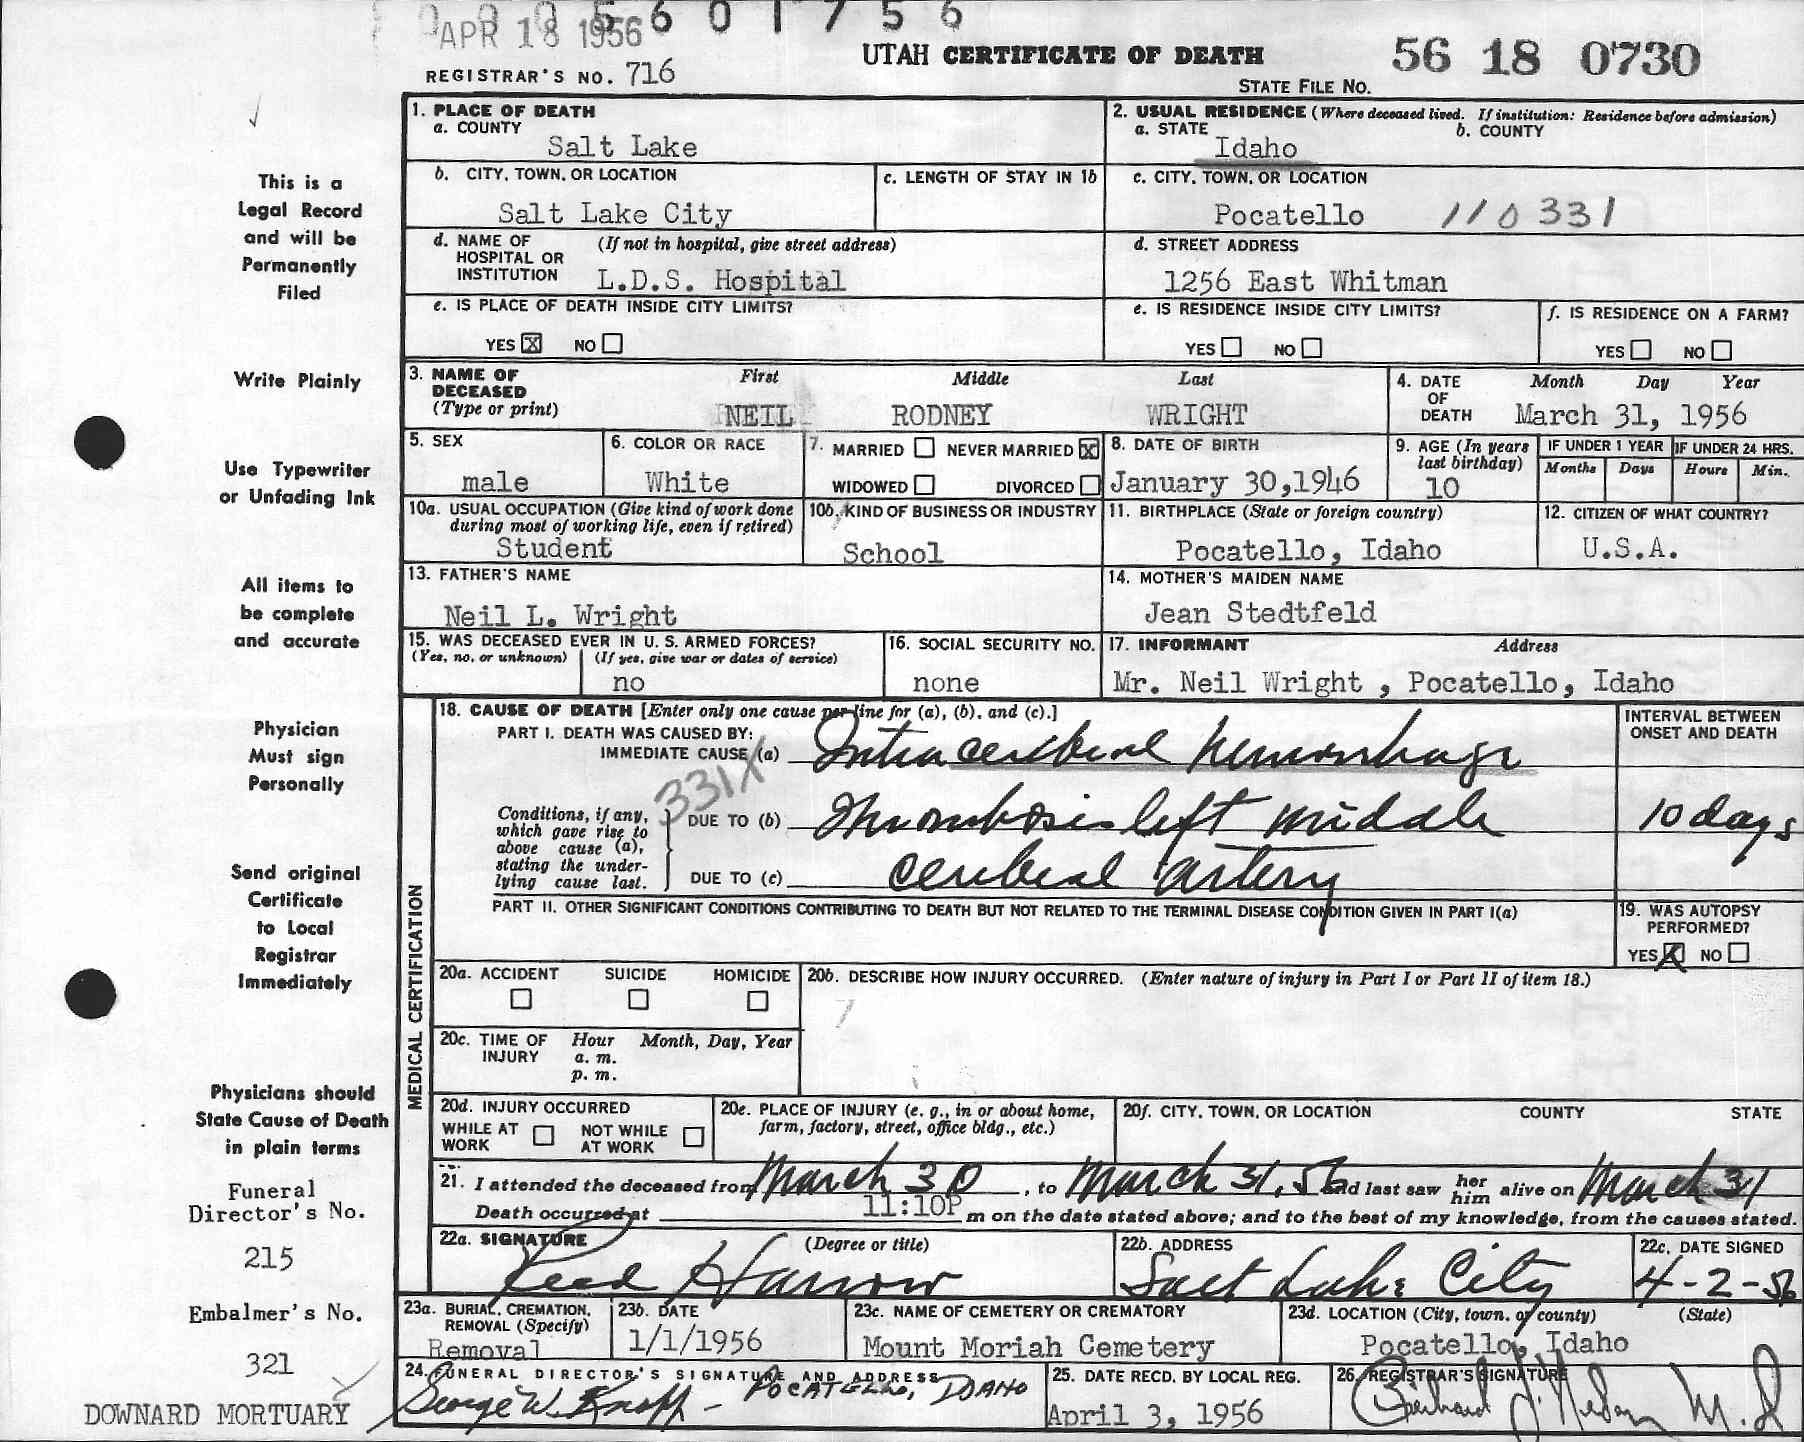 0005601756
APR 18 1956
REGISTRAR'S NO. 716
UTAH CERTIFICATE OF DEATH
56 18 0730
STATE FILE NO.
This is a
Legal Record
and will be
Permanently
Filed
Write Plainly
Use Typewriter
or Unfading Ink
All items to
be complete
and accurate
Physician
Must sign
Personally
Send original
Certificate
to Local
Registrar
Immediately
Physicians should
State Cause of Death
in plain terms
Funeral
Director's No.
215
Embalmer's No.
321
DOWNARD MORTUARY
1. PLACE OF DEATH
a. COUNTY
Salt Lake
2. USUAL RESIDENCE (Where deceased lived. If institution: Residence before admission)
a. STATE b. COUNTY
Idaho
b. CITY, TOWN, OR LOCATION
Salt Lake City
c. LENGTH OF STAY IN 1b
c. CITY, TOWN, OR LOCATION
Pocatello 110331
d. NAME OF (If not in hospital, give street address)
HOSPITAL OR
INSTITUTION L.D.S. Hospital
d. STREET ADDRESS
1256 East Whitman
e. IS PLACE OF DEATH INSIDE CITY LIMITS?
YES X NO
e. IS RESIDENCE INSIDE CITY LIMITS?
YES NO
f. IS RESIDENCE ON A FARM?
YES NO
3. NAME OF First Middle Last
DECEASED
(Type or print) NEIL RODNEY WRIGHT
4. DATE Month Day Year
OF
DEATH March 31, 1956
5. SEX
male
6. COLOR OR RACE
White
7. MARRIED NEVER MARRIED X
WIDOWED DIVORCED
8. DATE OF BIRTH
January 30,1946
9. AGE (In years
last birthday)
10
IF UNDER 1 YEAR IF UNDER 24 HRS.
Months Days Hours Min.
10a. USUAL OCCUPATION (Give kind of work done
during most of working life, even if retired)
Student
10b. KIND OF BUSINESS OR INDUSTRY
School
11. BIRTHPLACE (State or foreign country)
Pocatello, Idaho
12. CITIZEN OF WHAT COUNTRY?
U.S.A.
13. FATHER'S NAME
Neil L. Wright
14. MOTHER'S MAIDEN NAME
Jean Stedtfeld
15. WAS DECEASED EVER IN U. S. ARMED FORCES?
(Yes, no, or unknown) (If yes, give war or dates of service)
no
16. SOCIAL SECURITY NO.
none
17. INFORMANT Address
Mr. Neil Wright , Pocatello, Idaho
MEDICAL CERTIFICATION
18. CAUSE OF DEATH [Enter only one cause per line for (a), (b), and (c).]
PART I. DEATH WAS CAUSED BY:
IMMEDIATE CAUSE (a) Intracerebral hemorrhage
331X
INTERVAL BETWEEN
ONSET AND DEATH
Conditions, if any,
which gave rise to
above cause (a),
stating the under-
lying cause last.
DUE TO (b) Thrombosis left middle
10 days
DUE TO (c) cerebral artery
PART II. OTHER SIGNIFICANT CONDITIONS CONTRIBUTING TO DEATH BUT NOT RELATED TO THE TERMINAL DISEASE CONDITION GIVEN IN PART I(a)
19. WAS AUTOPSY
PERFORMED?
YES X NO
20a. ACCIDENT SUICIDE HOMICIDE
20b. DESCRIBE HOW INJURY OCCURRED. (Enter nature of injury in Part I or Part II of item 18.)
20c. TIME OF Hour Month, Day, Year
INJURY a. m.
p. m.
20d. INJURY OCCURRED
WHILE AT NOT WHILE
WORK AT WORK
20e. PLACE OF INJURY (e. g., in or about home,
farm, factory, street, office bldg., etc.)
20f. CITY, TOWN, OR LOCATION COUNTY STATE
21. I attended the deceased from March 30, to March 31, 56 and last saw her him alive on March 31
Death occurred at 11:10P m on the date stated above; and to the best of my knowledge, from the causes stated.
22a. SIGNATURE (Degree or title)
Reed Harrow
22b. ADDRESS
Salt Lake City
22c. DATE SIGNED
4-2-56
23a. BURIAL, CREMATION,
REMOVAL (Specify)
Removal
23b. DATE
1/1/1956
23c. NAME OF CEMETERY OR CREMATORY
Mount Moriah Cemetery
23d. LOCATION (City, town, or county) (State)
Pocatello, Idaho
24. FUNERAL DIRECTOR'S SIGNATURE AND ADDRESS
George W. Knoff - POCATELLO, IDAHO
25. DATE RECD. BY LOCAL REG.
April 3, 1956
26. REGISTRAR'S SIGNATURE
M.D